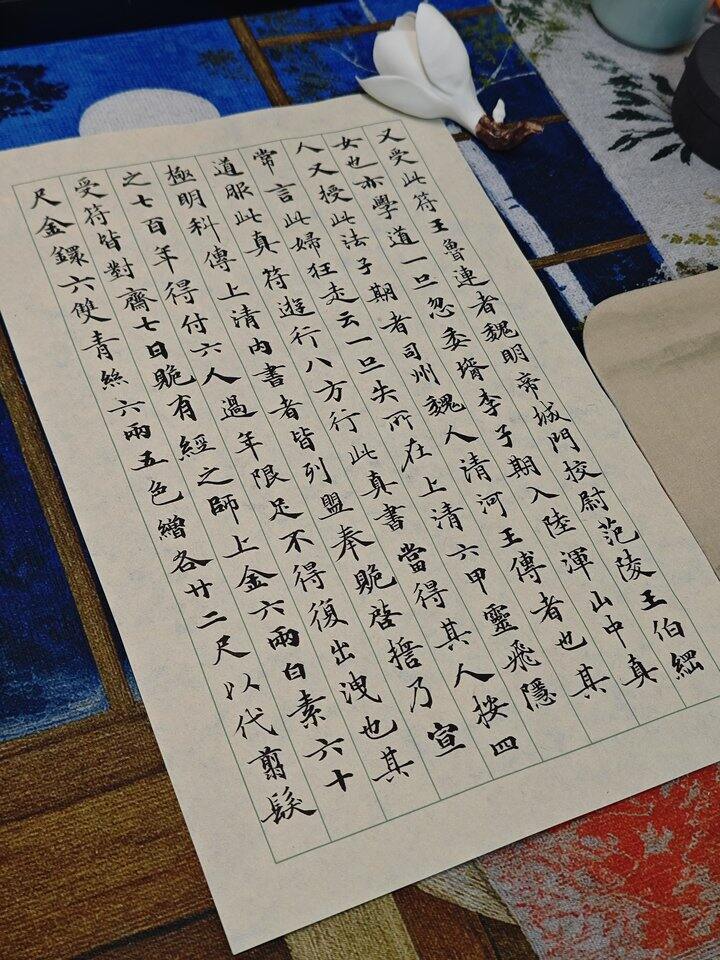 又受此符王魯連者魏明帝城門挍尉范陵王伯綱
女也亦學道一旦忽委壻李子期入陸渾山中真
人又授此法子期者司州魏人清河王傳者也其
常言此婦狂走云一旦失所在上清六甲靈飛隱
道服此真符遊行八方行此真書當得其人按四
極明科傳上清內書者皆列盟奉貺啓誓乃宣
之七百年得付六人過年限足不得復出洩也其
受符皆對齋七日貺有經之師上金六兩白素六十
尺金鐶六雙青絲六兩五色繒各廿二尺以代翦髮